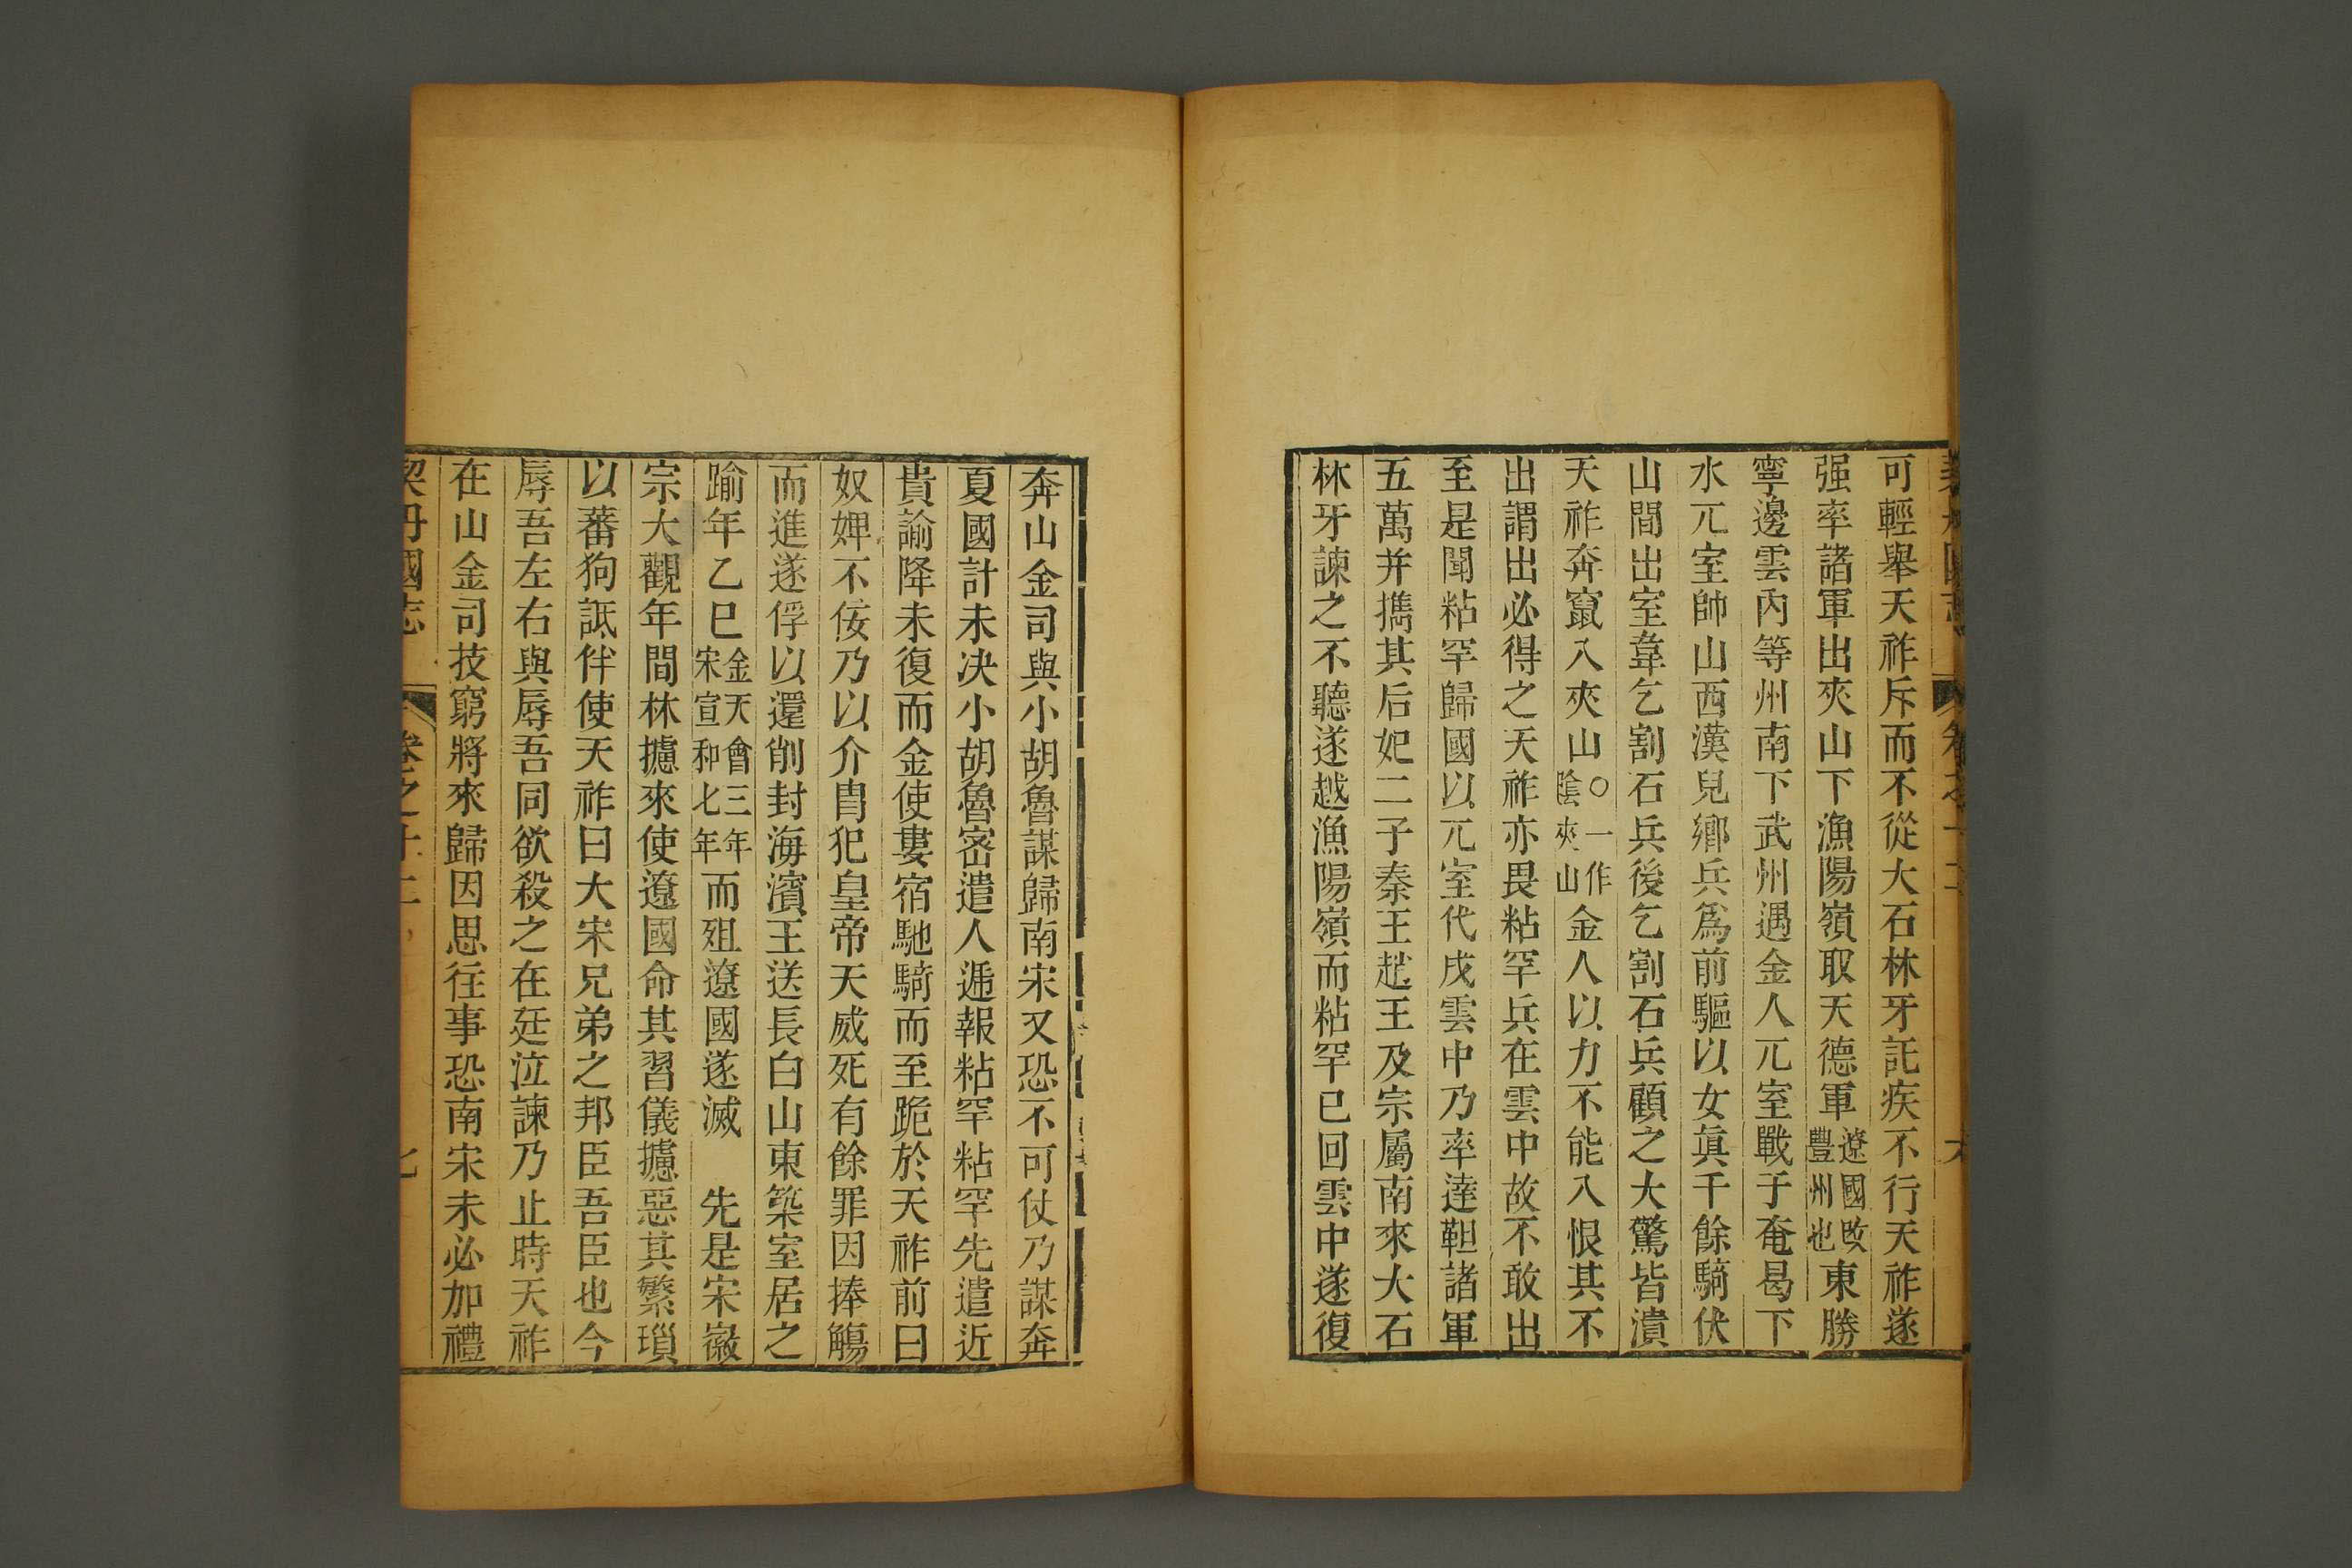 可輕舉天祚斥而不從大石林牙託疾不行天祚遂
强率諸軍出夾山下漁陽嶺取天德軍遼國改豐州也東勝
寧邊雲內等州南下武州遇金人兀室戰于奄曷下
水兀室帥山西漢兒鄉兵爲前驅以女眞千餘騎伏
山間出室韋乞割石兵後乞割石兵顧之大驚皆潰
天祚奔竄入夾山○一作陰夾山金人以力不能入恨其不
出謂出必得之天祚亦畏粘罕兵在雲中故不敢出
至是聞粘罕歸國以兀室代戍雲中乃率達靼諸軍
五萬并擕其后妃二子秦王趙王及宗屬南來大石
林牙諫之不聽遂越漁陽嶺而粘罕已回雲中遂復
奔山金司與小胡魯謀歸南宋又恐不可仗乃謀奔
夏國計未决小胡魯密遣人遞報粘罕粘罕先遣近
貴諭降未復而金使婁宿馳騎而至跪於天祚前曰
奴婢不佞乃以介胄犯皇帝天威死有餘罪因捧觴
而進遂俘以還削封海濱王送長白山東築室居之
踰年乙巳金天會三年宋宣和七年而殂遼國遂滅　先是宋徽
宗大觀年間林攄來使遼國命其習儀攄惡其繁瑣
以蕃狗詆伴使天祚曰大宋兄弟之邦臣吾臣也今
辱吾左右與辱吾同欲殺之在廷泣諫乃止時天祚
在山金司技窮將來歸因思往事恐南宋未必加禮
契丹國志　卷之十二　七